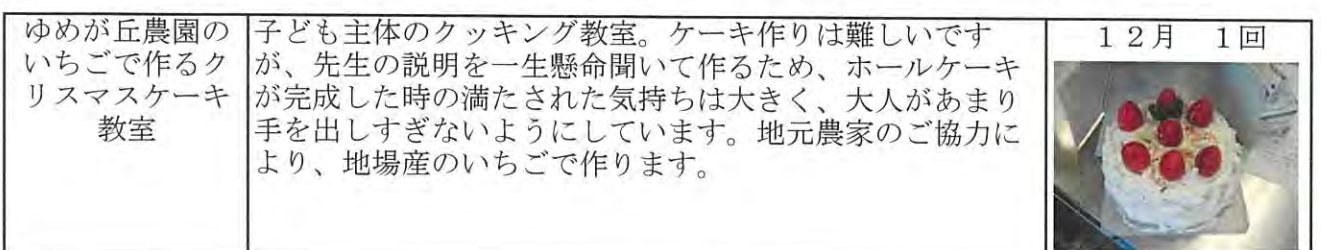 ゆめが丘農園の
いちごで作るク
リスマスケーキ
教室
子ども主体のクッキング教室。ケーキ作りは難しいです
が、先生の説明を一生懸命聞いて作るため、ホールケーキ
が完成した時の満たされた気持ちは大きく、大人があまり
手を出しすぎないようにしています。地元農家のご協力に
より、地場産のいちごで作ります。
12月 1回